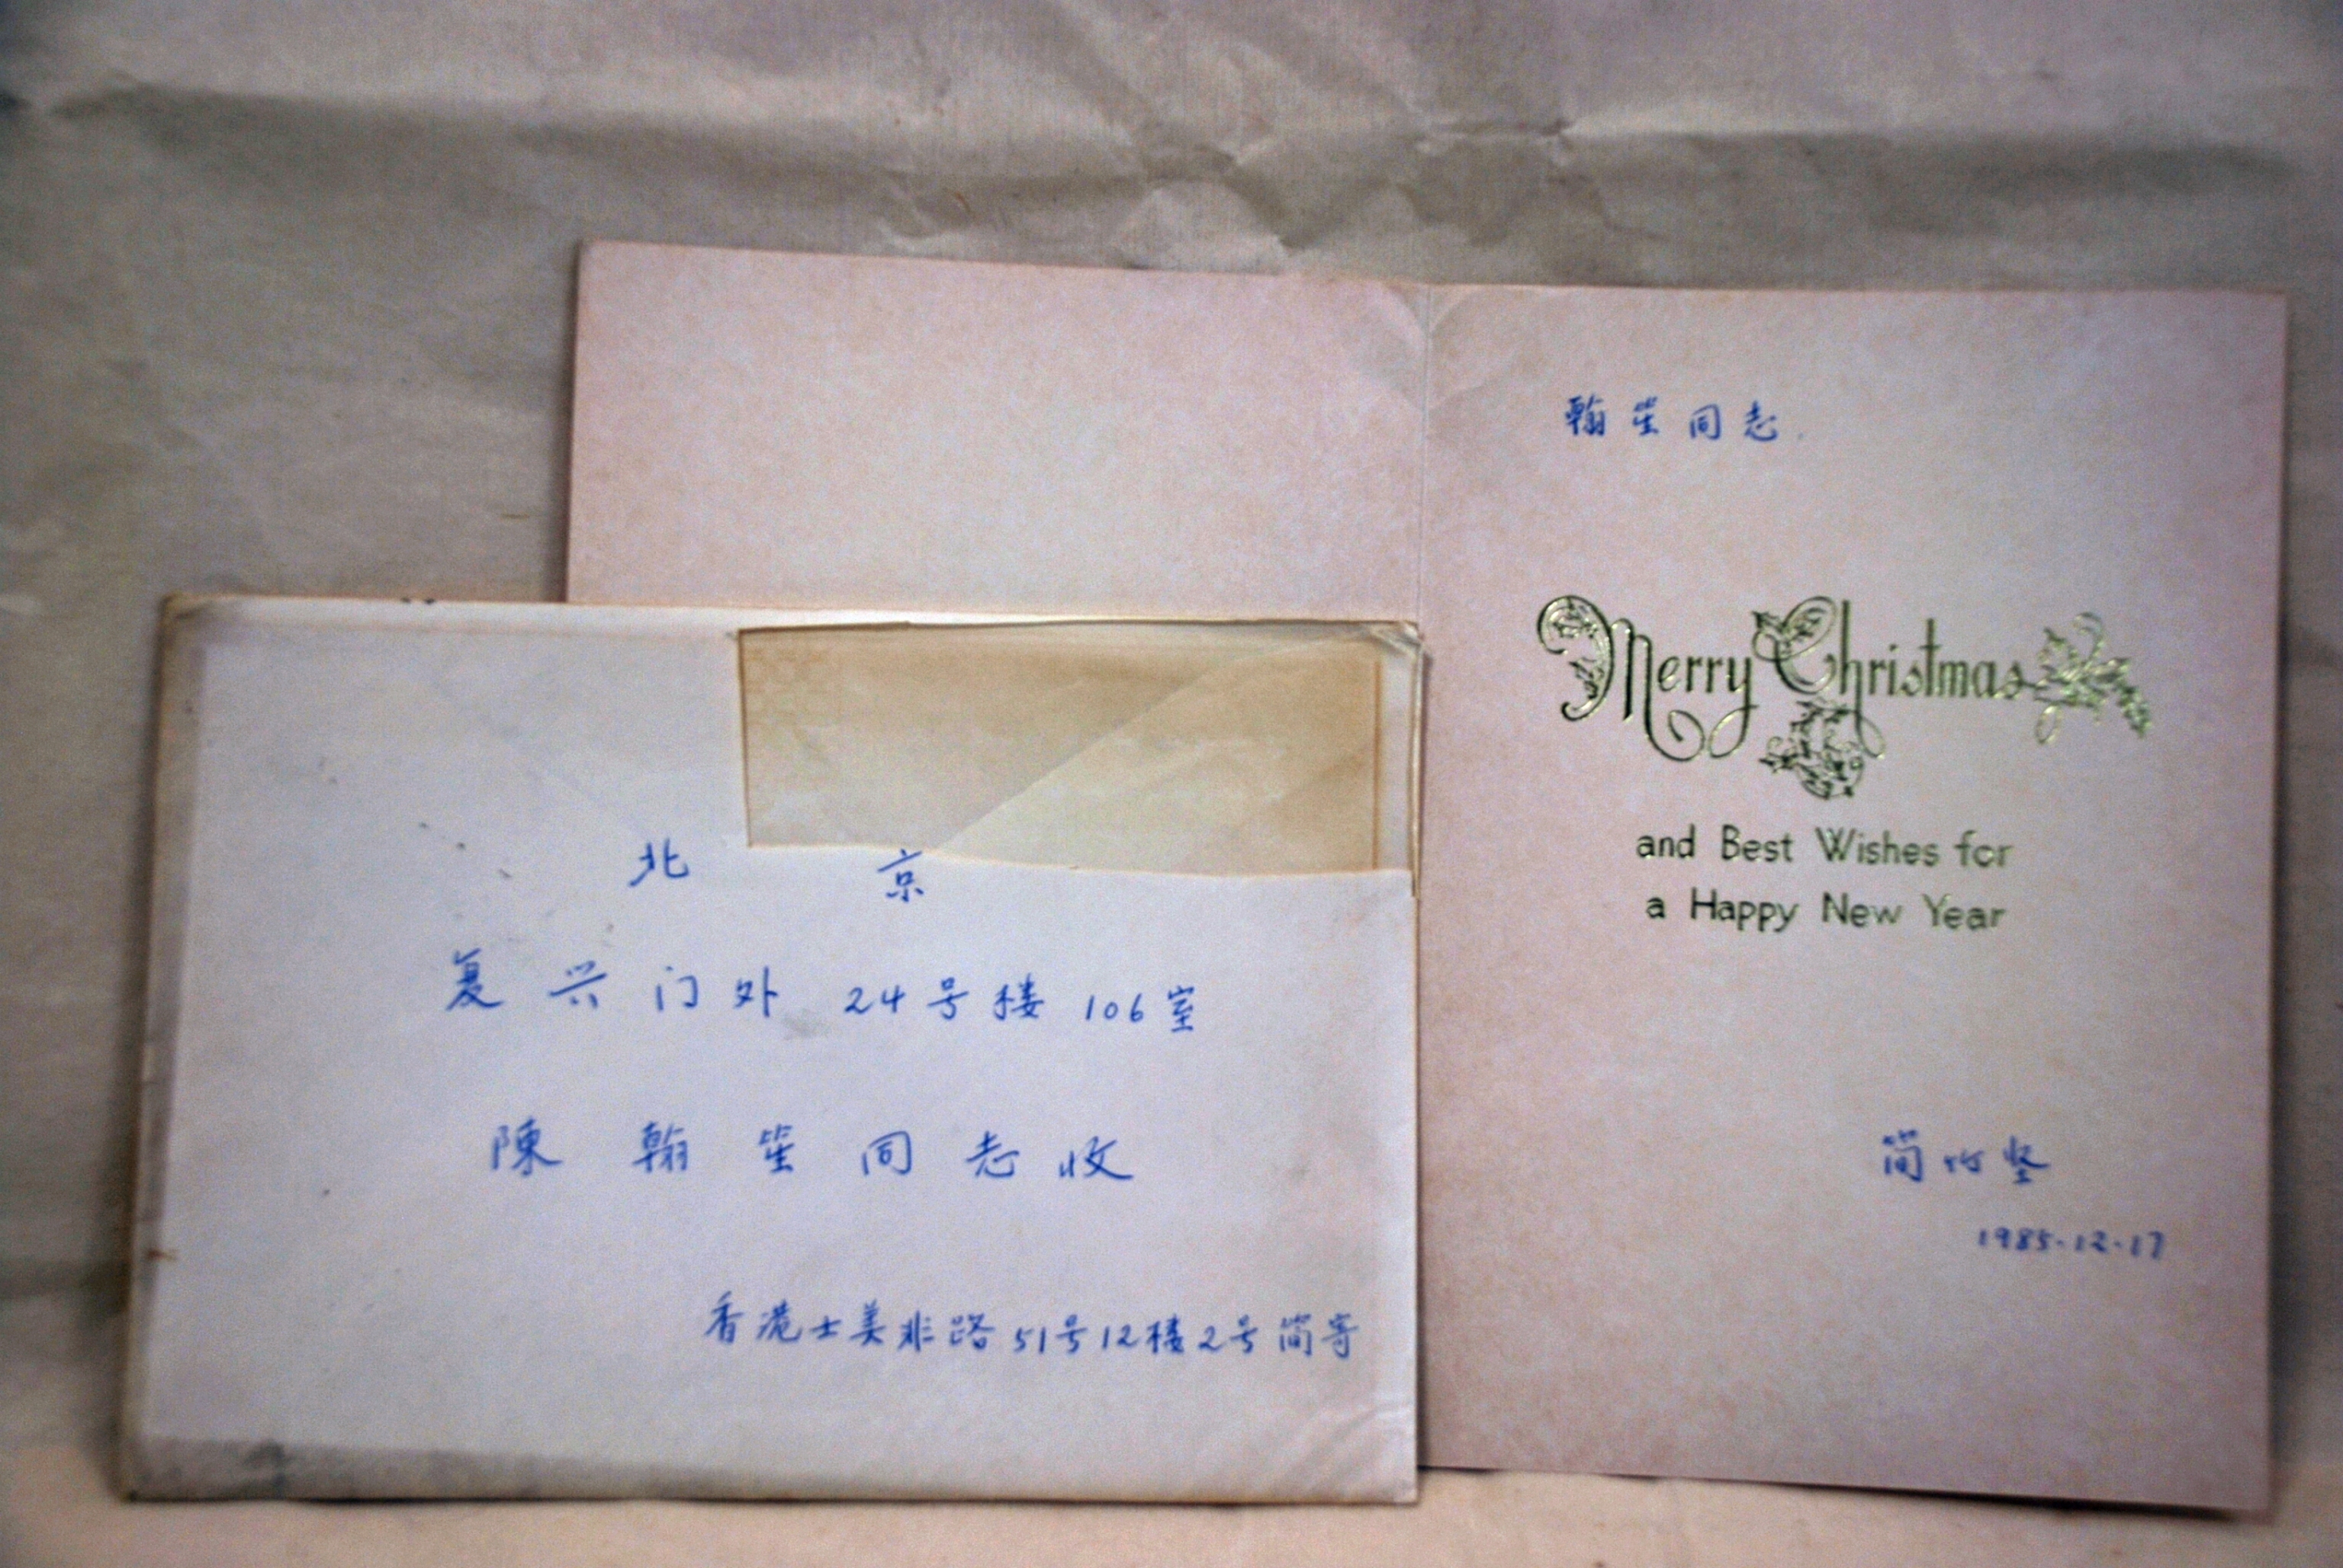 北 京
复兴门外 24号楼 106室
陳翰笙同志收
香港士美非路51号12楼2号簡寄
翰笙同志.
Merry Christmas
and Best Wishes for
a Happy New Year
简竹坚
1985.12.17